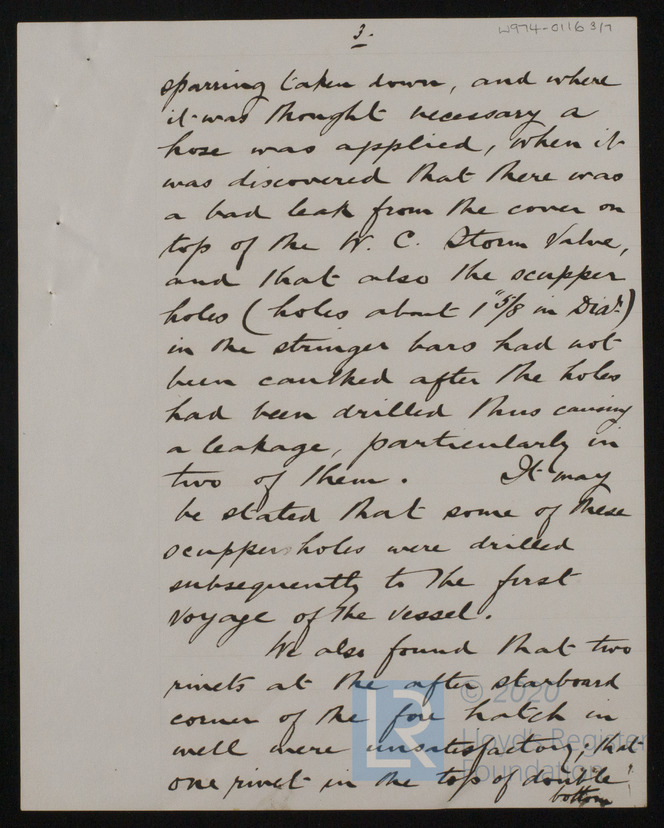 3.
W974-0116 3/7
sparring taken down, and where
it was thought necessary a
hose was applied, when it
was discovered that there was
a bad leak from the cover on
top of the W. C. Storm Valve,
and that also the scupper
holes (holes about 1"5/8 in Diar.)
in the stringer bars had not
been caulked after the holes
had been drilled thus causing
a leakage, particularly in
two of them. It may
be stated that some of these
scupper holes were drilled
subsequently to the first
voyage of the vessel.
We also found that two
rivets at the after starboard
corner of the fore hatch in
well were unsatisfactory; that
one rivet in the top of double
bottom
LR
© 2020
Lloyd's Register
Foundation